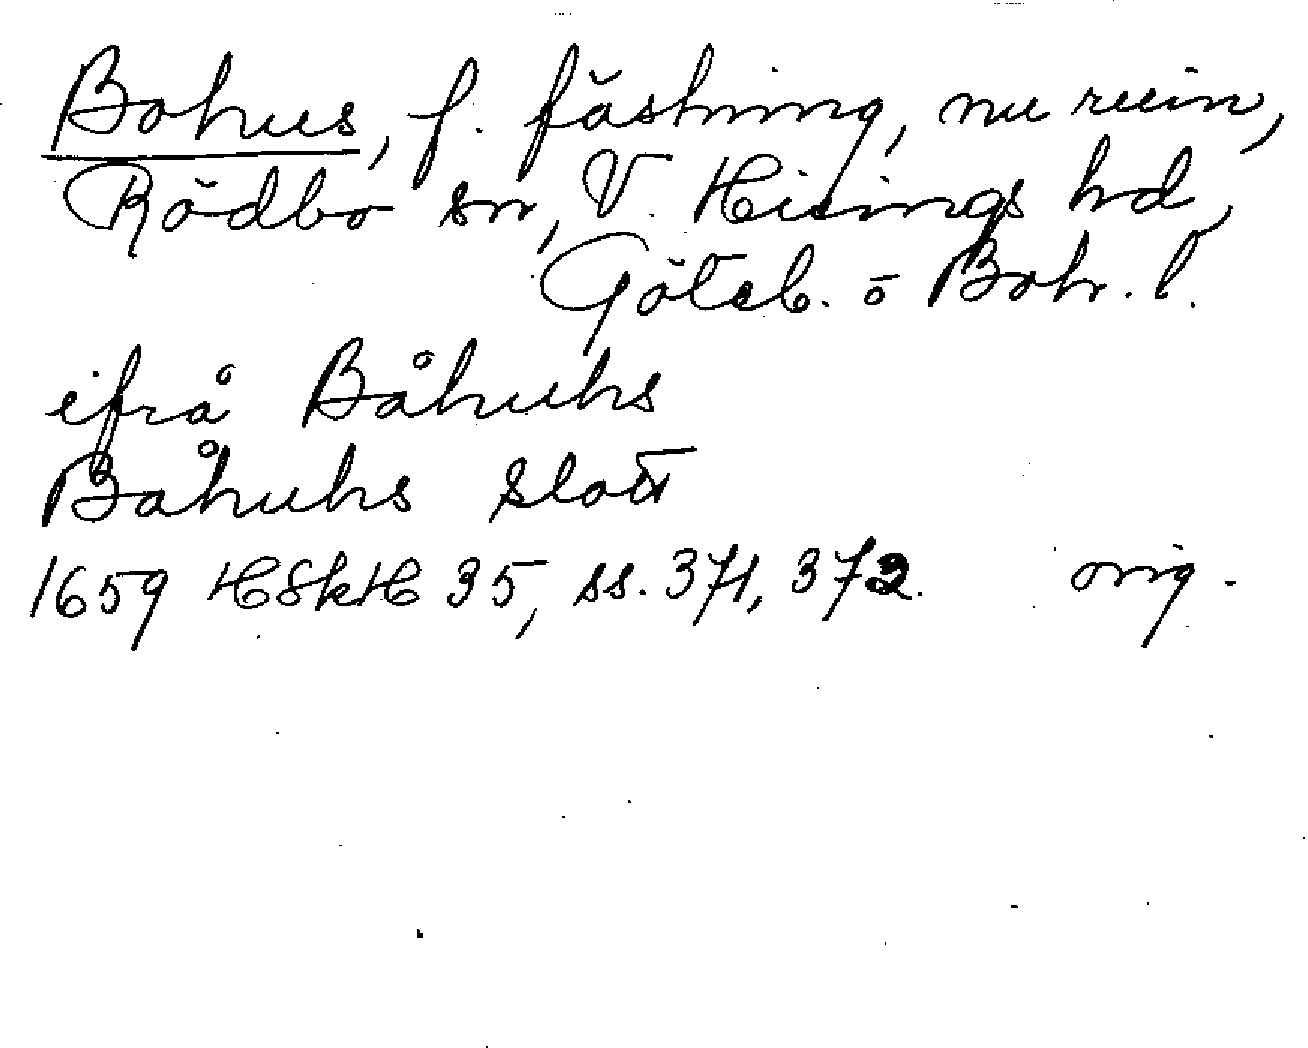 Bohus, f. fästning, nu ruin,
Rödbo sn, V. Hisings hd,
Göteb. o Boh. l.
ifrå Båhuhs
Båhuhs slott
1659 HSkH 35, ss. 371, 372. orig.